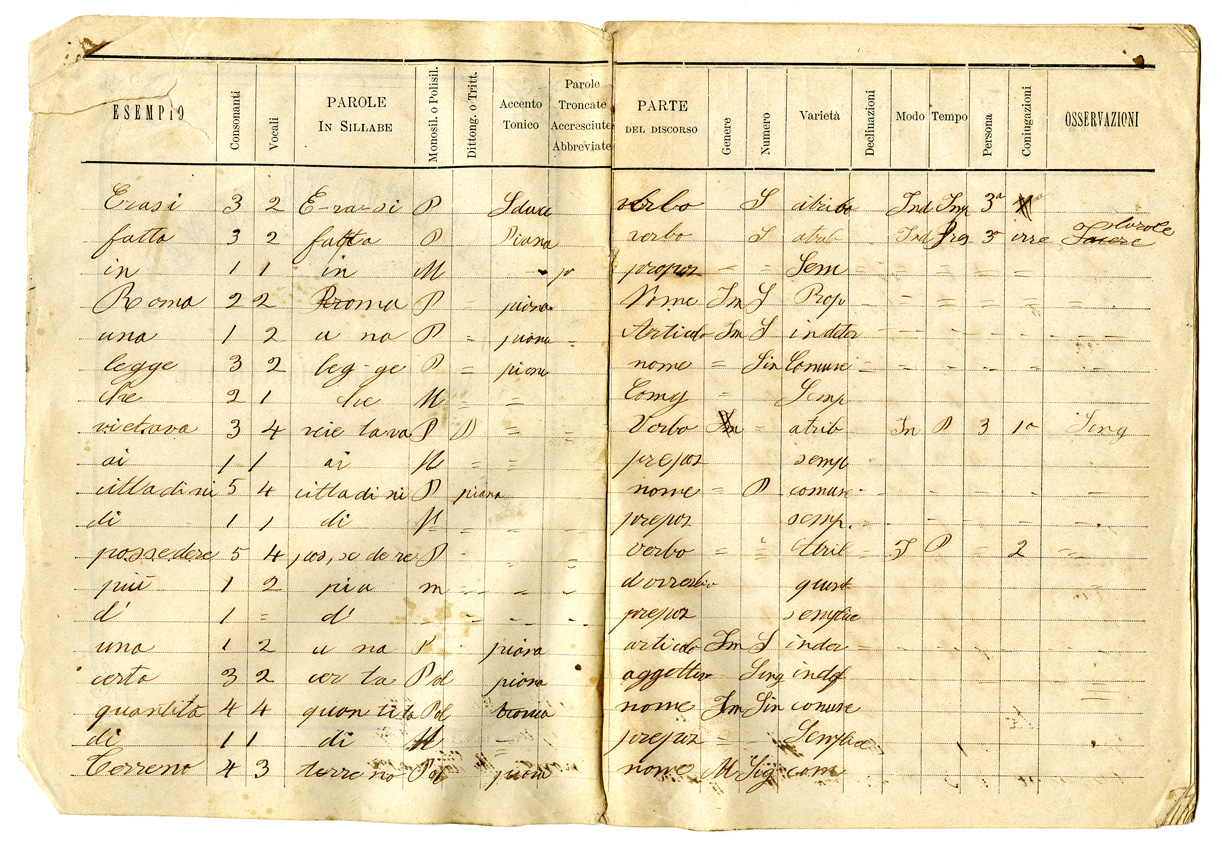 ESEMPIO Consonanti Vocali PAROLE IN SILLABE Monosil. o Polisil. Dittong. o Tritt. Accento Tonico Parole Troncate Accresciute Abbreviate PARTE DEL DISCORSO Genere Numero Varietà Declinazioni Modo Tempo Persona Coniugazioni OSSERVAZIONI
Erasi 3 2 E-ra-si P Sducc verbo S atribo Ind Imp 3a
fatta 3 2 fatta P Piana verbo S atrib Ind Prg 3a irre
in 1 1 in M prepoz = = Sem = = = = =
Roma 2 2 Rroma P = piana Nome Fm S Prop = = = = =
una 1 2 u na P = piana = Articolo Fm S indeter
legge 3 2 leg-ge P = piana nome = Sin Comune = = = = =
che 2 1 che M = = Cong = Semp
vietava 3 4 vie tava P D = = Verbo = atrib In P 3 1a Sing
ai 1 1 ai M = = prepoz semp
cittadini 5 4 cittadini P piana nome = P comune
di 1 1 di M = = prepoz semp.
possedere 5 4 pos,se de re P verbo = = Atrib = I P = 2 =
più 1 2 piu m
d' 1 = d' prepoz semplice
una 1 2 u na P piana articolo Fm S indeter
certa 3 2 cer ta Pol piana aggettivo Sing indef
quantità 4 4 quantità Pol tronca nome Fm Sin comune
di 1 1 di M = prepoz = Semplice
terreno 4 3 terreno Pol piana nome M Sig com